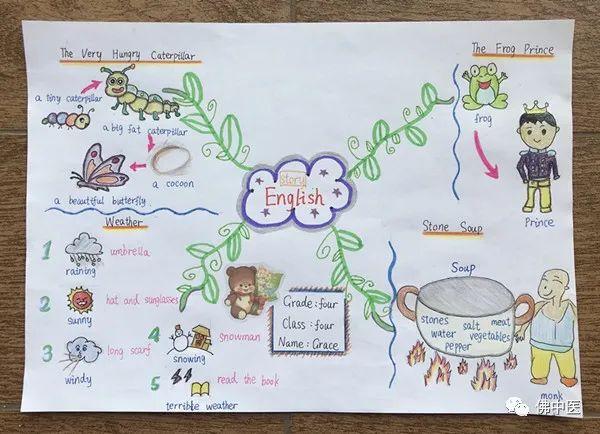 The Very Hungry Caterpillar
a tiny caterpillar
a big fat caterpillar
a cocoon
a beautiful butterfly
The Frog Prince
frog
Prince
story
English
Weather
1 raining umbrella
2 sunny hat and sunglasses
3 windy long scarf
4 snowing snowman
5 terrible weather read the book
Grade:four
Class:four
Name:Grace
Stone Soup
Soup
stones salt meat
water vegetables
pepper
monk
佛中医